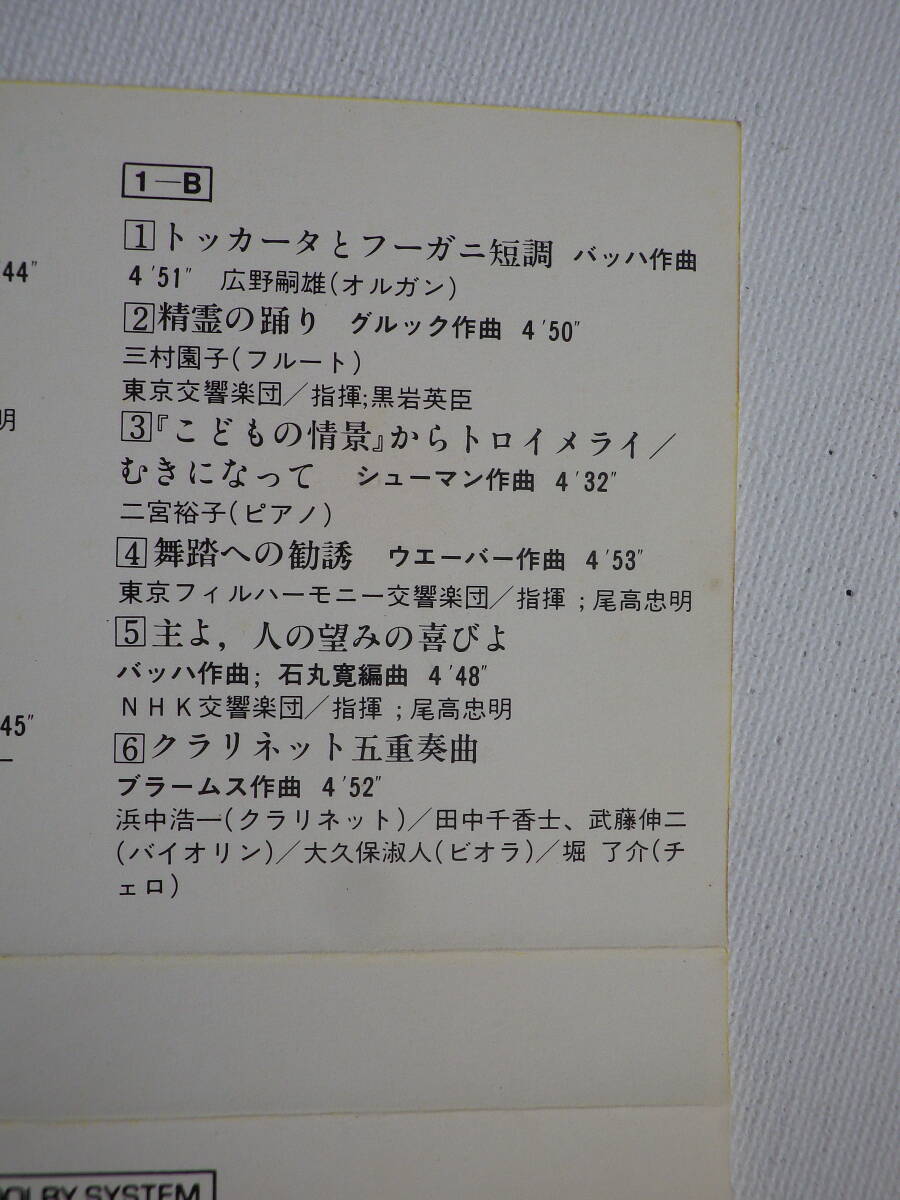 1—B
1 トッカータとフーガニ短調 バッハ作曲
4′51″ 広野嗣雄(オルガン)
2 精霊の踊り グルック作曲 4′50″
三村園子(フルート)
東京交響楽団／指揮;黒岩英臣
3 『こどもの情景』からトロイメライ／
むきになって シューマン作曲 4′32″
二宮裕子(ピアノ)
4 舞踏への勧誘 ウエーバー作曲 4′53″
東京フィルハーモニー交響楽団／指揮;尾高忠明
5 主よ，人の望みの喜びよ
バッハ作曲; 石丸寛編曲 4′48″
NHK交響楽団／指揮;尾高忠明
6 クラリネット五重奏曲
ブラームス作曲 4′52″
浜中浩一(クラリネット)／田中千香士、武藤伸二
(バイオリン)／大久保淑人(ビオラ)／堀 了介(チ
ェロ)
44″
明
45″
DOLBY SYSTEM